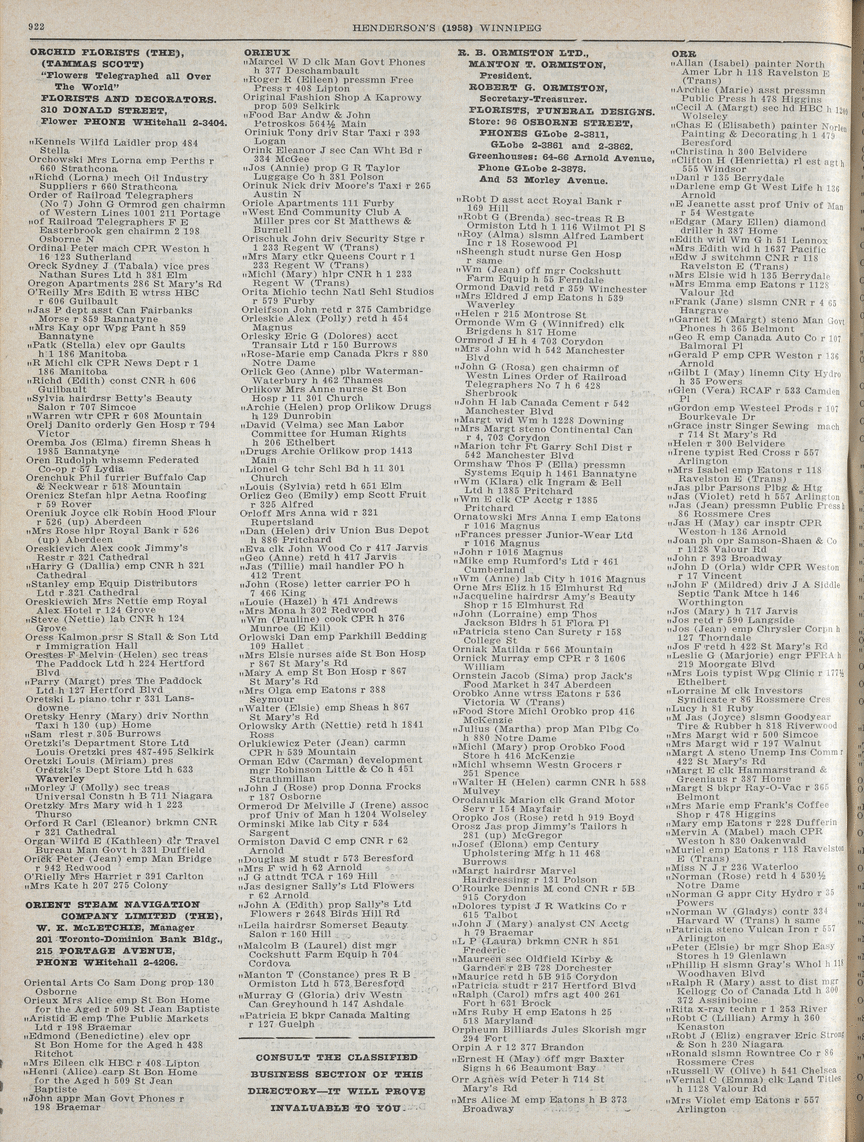 922
HENDERSON'S (1958) WINNIPEG
ORCHID FLORISTS (THE),
(TAMMAS SCOTT)
"Flowers Telegraphed all Over
The World"
FLORISTS AND DECORATORS.
310 DONALD STREET,
Flower PHONE WHitehall 2-3404.
„Kennels Wilfd Laidler prop 484
Stella
Orchowski Mrs Lorna emp Perths r
660 Strathcona
„Richd (Lorna) mech Oil Industry
Suppliers r 660 Strathcona
Order of Railroad Telegraphers
(No 7) John G Ormrod gen chairmn
of Western Lines 1001 211 Portage
„of Railroad Telegraphers F E
Easterbrook gen chairmn 2 198
Osborne N
Ordinal Peter mach CPR Weston h
16 123 Sutherland
Oreck Sydney J (Tabala) vice pres
Nathan Sures Ltd h 381 Elm
Oregon Apartments 286 St Mary's Rd
O'Reilly Mrs Edith E wtrss HBC
r 606 Guilbault
„Jas P dept asst Can Fairbanks
Morse r 859 Bannatyne
„Mrs Kay opr Wpg Pant h 859
Bannatyne
„Patk (Stella) elev opr Gaults
h 1 186 Manitoba
„R Michl clk CPR News Dept r 1
186 Manitoba
„Richd (Edith) const CNR h 606
Guilbault
„Sylvia hairdrsr Betty's Beauty
Salon r 707 Simcoe
„Warren wtr CPR r 608 Mountain
Orelj Danito orderly Gen Hosp r 794
Victor
Oremba Jos (Elma) firemn Sheas h
1985 Bannatyne
Oren Rudolph whsemn Federated
Co-op r 57 Lydia
Orenchuk Phil furrier Buffalo Cap
& Neckwear r 518 Mountain
Orenicz Stefan hlpr Aetna Roofing
r 59 Rover
Oreniuk Joyce clk Robin Hood Flour
r 526 (up) Aberdeen
„Mrs Rose hlpr Royal Bank r 526
(up) Aberdeen
Oreskievich Alex cook Jimmy's
Restr r 321 Cathedral
„Harry G (Dallia) emp CNR h 321
Cathedral
„Stanley emp Equip Distributors
Ltd r 321 Cathedral
Oreskiewich Mrs Nettie emp Royal
Alex Hotel r 124 Grove
„Steve (Nettie) lab CNR h 124
Grove
Oress Kalmon prsr S Stall & Son Ltd
r Immigration Hall
Orestes F Melvin (Helen) sec treas
The Paddock Ltd h 224 Hertford
Blvd
„Parry (Margt) pres The Paddock
Ltd h 127 Hertford Blvd
Oretski L piano tchr r 331 Lans-
downe
Oretsky Henry (Mary) driv Northn
Taxi h 130 (up) Home
„Sam rlest r 305 Burrows
Oretzki's Department Store Ltd
Louis Oretzki pres 487-495 Selkirk
Oretzki Louis (Miriam) pres
Oretzki's Dept Store Ltd h 633
Waverley
„Morley J (Molly) sec treas
Universal Constn h B 711 Niagara
Oretzky Mrs Mary wid h 1 223
Thurso
Orford R Carl (Eleanor) brkmn CNR
r 321 Cathedral
Organ Wilfd E (Kathleen) dir Travel
Bureau Man Govt h 331 Duffield
Oriek Peter (Jean) emp Man Bridge
r 942 Redwood
O'Rielly Mrs Harriet r 391 Carlton
„Mrs Kate h 207 275 Colony
ORIENT STEAM NAVIGATION
COMPANY LIMITED (THE),
W. K. McLETCHIE, Manager
201 Toronto-Dominion Bank Bldg.,
215 PORTAGE AVENUE,
PHONE WHitehall 2-4206.
Oriental Arts Co Sam Dong prop 130
Osborne
Orieux Mrs Alice emp St Bon Home
for the Aged r 509 St Jean Baptiste
„Aristid E emp The Public Markets
Ltd r 198 Braemar
„Edmond (Benedictine) elev opr
St Bon Home for the Aged h 438
Ritchot
„Mrs Eileen clk HBC r 408 Lipton
„Henri (Alice) carp St Bon Home
for the Aged h 509 St Jean
Baptiste
„John appr Man Govt Phones r
198 Braemar
ORIEUX
„Marcel W D clk Man Govt Phones
h 377 Deschambault
„Roger R (Eileen) pressmn Free
Press r 408 Lipton
Original Fashion Shop A Kaprowy
prop 509 Selkirk
„Food Bar Andw & John
Petroskos 564½ Main
Oriniuk Tony driv Star Taxi r 393
Logan
Orink Eleanor J sec Can Wht Bd r
334 McGee
„Jos (Annie) prop G R Taylor
Luggage Co h 381 Polson
Orinuk Nick driv Moore's Taxi r 265
Austin N
Oriole Apartments 111 Furby
„West End Community Club A
Miller pres cor St Matthews &
Burnell
Orischuk John driv Security Stge r
1 233 Regent W (Trans)
„Mrs Mary ctkr Queens Court r 1
233 Regent W (Trans)
„Michl (Mary) hlpr CNR h 1 233
Regent W (Trans)
Orita Michio techn Natl Schl Studios
r 579 Furby
Orleifson John retd r 375 Cambridge
Orleskie Alex (Polly) retd h 454
Magnus
Orlesky Eric G (Dolores) acct
Transair Ltd r 150 Burrows
„Rose-Marie emp Canada Pkrs r 880
Notre Dame
Orlick Geo (Anne) plbr Waterman-
Waterbury h 462 Thames
Orlikow Mrs Anne nurse St Bon
Hosp r 11 301 Church
„Archie (Helen) prop Orlikow Drugs
h 129 Dunrobin
„David (Velma) sec Man Labor
Committee for Human Rights
h 206 Ethelbert
„Drugs Archie Orlikow prop 1413
Main
„Lionel G tchr Schl Bd h 11 301
Church
„Louis (Sylvia) retd h 651 Elm
Orlicz Geo (Emily) emp Scott Fruit
r 325 Alfred
Orloff Mrs Anna wid r 321
Rupertsland
„Dan (Helen) driv Union Bus Depot
h 886 Pritchard
„Eva clk John Wood Co r 417 Jarvis
„Geo (Anne) retd h 417 Jarvis
„Jas (Tillie) mail handler PO h
412 Trent
„John (Rose) letter carrier PO h
7 466 King
„Louie (Hazel) h 471 Andrews
„Mrs Mona h 302 Redwood
„Wm (Pauline) cook CPR h 376
Munroe (E Kil)
Orlowski Dan emp Parkhill Bedding
109 Hallet
„Mrs Elsie nurses aide St Bon Hosp
r 867 St Mary's Rd
„Mary A emp St Bon Hosp r 867
St Mary's Rd
„Mrs Olga emp Eatons r 388
Seymour
„Walter (Elsie) emp Sheas h 867
St Mary's Rd
Orlowsky Arth (Nettie) retd h 1841
Ross
Orlukiewicz Peter (Jean) carmn
CPR h 539 Mountain
Orman Edw (Carman) development
mgr Robinson Little & Co h 451
Strathmillan
„John J (Rose) prop Donna Frocks
r 187 Osborne
Ormerod Dr Melville J (Irene) assoc
prof Univ of Man h 1204 Wolseley
Orminski Mike lab City r 534
Sargent
Ormiston David C emp CNR r 62
Arnold
„Douglas M studt r 573 Beresford
„Mrs F wid h 62 Arnold
„J G attndt TCA r 169 Hill
„Jas designer Sally's Ltd Flowers
r 62 Arnold
„John A (Edith) prop Sally's Ltd
Flowers r 2648 Birds Hill Rd
„Leila hairdrsr Somerset Beauty
Salon r 169 Hill
„Malcolm B (Laurel) dist mgr
Cockshutt Farm Equip h 704
Cordova
„Manton T (Constance) pres R B
Ormiston Ltd h 573 Beresford
„Murray G (Gloria) driv Westn
Can Greyhound h 147 Ashdale
„Patricia E bkpr Canada Malting
r 127 Guelph
CONSULT THE CLASSIFIED
BUSINESS SECTION OF THIS
DIRECTORY—IT WILL PROVE
INVALUABLE TO YOU
R. B. ORMISTON LTD.,
MANTON T. ORMISTON,
President.
ROBERT G. ORMISTON,
Secretary-Treasurer.
FLORISTS, FUNERAL DESIGNS.
Store: 96 OSBORNE STREET,
PHONES GLobe 2-3811,
GLobe 2-3861 and 2-3862.
Greenhouses: 64-66 Arnold Avenue,
Phone GLobe 2-3878.
And 53 Morley Avenue.
„Robt D asst acct Royal Bank r
169 Hill
„Robt G (Brenda) sec-treas R B
Ormiston Ltd h 1 116 Wilmot Pl S
„Roy (Alma) slsmn Alfred Lambert
Inc r 18 Rosewood Pl
„Sheengh studt nurse Gen Hosp
r same
„Wm (Jean) off mgr Cockshutt
Farm Equip h 55 Ferndale
Ormond David retd r 359 Winchester
„Mrs Eldred J emp Eatons h 539
Waverley
„Helen r 215 Montrose St
Ormonde Wm G (Winnifred) clk
Brigdens h 817 Home
Ormrod J H h 4 703 Corydon
„Mrs John wid h 542 Manchester
Blvd
„John G (Rosa) gen chairmn of
Westn Lines Order of Railroad
Telegraphers No 7 h 6 428
Sherbrook
„John H lab Canada Cement r 542
Manchester Blvd
„Margt wid Wm h 1228 Downing
„Mrs Margt steno Continental Can
r 4, 703 Corydon
„Marion tchr Ft Garry Schl Dist r
542 Manchester Blvd
Ormshaw Thos P (Ella) pressmn
Systems Equip h 1461 Bannatyne
„Wm (Klara) clk Ingram & Bell
Ltd h 1385 Pritchard
„Wm E clk CP Acctg r 1385
Pritchard
Ornatowski Mrs Anna I emp Eatons
r 1016 Magnus
„Frances presser Junior-Wear Ltd
r 1016 Magnus
„John r 1016 Magnus
„Mike emp Rumford's Ltd r 461
Cumberland
„Wm (Anne) lab City h 1016 Magnus
Orne Mrs Eliz h 15 Elmhurst Rd
„Jacqueline hairdrsr Amy's Beauty
Shop r 15 Elmhurst Rd
„John (Lorraine) emp Thos
Jackson Bldrs h 51 Flora Pl
„Patricia steno Can Surety r 158
College St
Orniak Matilda r 566 Mountain
Ornick Murray emp CPR r 3 1606
William
Ornstein Jacob (Sima) prop Jack's
Food Market h 347 Aberdeen
Orobko Anne wtrss Eatons r 536
Victoria W (Trans)
„Food Store Michl Orobko prop 416
McKenzie
„Julius (Martha) prop Man Plbg Co
h 880 Notre Dame
„Michl (Mary) prop Orobko Food
Store h 416 McKenzie
„Michl whsemn Westn Grocers r
251 Spence
„Walter H (Helen) carmn CNR h 588
Mulvey
Orodanuik Marion clk Grand Motor
Serv r 154 Mayfair
Oropko Jos (Rose) retd h 919 Boyd
Orosz Jas prop Jimmy's Tailors h
281 (up) McGregor
„Josef (Elona) emp Century
Upholstering Mfg h 11 468
Burrows
„Margt hairdrsr Marvel
Hairdressing r 131 Polson
O'Rourke Dennis M cond CNR r 5B
915 Corydon
„Dolores typist J R Watkins Co r
615 Talbot
„John J (Mary) analyst CN Acctg
h 79 Braemar
„L P (Laura) brkmn CNR h 851
Frederic
„Maureen sec Oldfield Kirby &
Garnder r 2B 728 Dorchester
„Maurice retd h 5B 915 Corydon
„Patricia studt r 217 Hertford Blvd
„Ralph (Carol) mfrs agt 400 261
Fort h 631 Brock
„Mrs Ruby H emp Eatons h 25
518 Maryland
Orpheum Billiards Jules Skorish mgr
294 Fort
Orpin A r 12 377 Brandon
„Ernest H (May) off mgr Baxter
Signs h 66 Beaumont Bay
Orr Agnes wid Peter h 714 St
Mary's Rd
„Mrs Alice M emp Eatons h B 373
Broadway
ORR
„Allan (Isabel) painter North
Amer Lbr h 118 Ravelston E
(Trans)
„Archie (Marie) asst pressmn
Public Press h 478 Higgins
„Cecil A (Margt) sec hd HBC h
Wolseley
„Chas E (Elisabeth) painter
Painting & Decorating h 1 479
Beresford
„Christina h 300 Belvidere
„Clifton H (Henrietta) rl est agt h
555 Windsor
„Danl r 135 Berrydale
„Darlene emp Gt West Life h 136
Arnold
„E Jeanette asst prof Univ of Man
r 54 Westgate
„Edgar (Mary Ellen) diamond
driller h 387 Home
„Edith wid Wm G h 51 Lennox
„Mrs Edith wid h 1637 Pacific
„Edw J switchmn CNR r 118
Ravelston E (Trans)
„Mrs Elsie wid h 135 Berrydale
„Mrs Emma emp Eatons r 1128
Valour Rd
„Frank (Jane) slsmn CNR r 4 65
Hargrave
„Garnet E (Margt) steno Man Govt
Phones h 365 Belmont
„Geo R emp Canada Auto Co r 107
Balmoral Pl
„Gerald P emp CPR Weston r 136
Arnold
„Gilbt I (May) linemn City Hydro
h 35 Powers
„Glen (Vera) RCAF r 533 Camden
Pl
„Gordon emp Westeel Prods r 107
Bourkevale Dr
„Grace instr Singer Sewing mach
r 714 St Mary's Rd
„Helen r 300 Belvidere
„Irene typist Red Cross r 557
Arlington
„Mrs Isabel emp Eatons r 118
Ravelston E (Trans)
„Jas plbr Parsons Plbg & Htg
„Jas (Violet) retd h 557 Arlington
„Jas (Jean) pressmn Public Press h
86 Rossmere Cres
„Jas H (May) car insptr CPR
Weston h 136 Arnold
„Joan ph opr Samson-Shaen & Co
r 1128 Valour Rd
„John r 393 Broadway
„John D (Orla) wldr CPR Weston
r 17 Vincent
„John F (Mildred) driv J A Siddle
Septic Tank Mtce h 146
Worthington
„Jos (Mary) h 717 Jarvis
„Jos retd r 590 Langside
„Jos (Jean) emp Chrysler Corpn h
127 Thorndale
„Jos F retd h 422 St Mary's Rd
„Leslie G (Marjorie) engr PFRA h
219 Moorgate Blvd
„Mrs Lois typist Wpg Clinic r 177½
Ethelbert
„Lorraine M clk Investors
Syndicate r 86 Rossmere Cres
„Lucy h 81 Ruby
„M Jas (Joyce) slsmn Goodyear
Tire & Rubber h 818 Riverwood
„Mrs Margt wid r 500 Simcoe
„Mrs Margt wid r 197 Walnut
„Margt A steno Unemp Ins Comm r
422 St Mary's Rd
„Margt E clk Hammarstrand &
Greenlaus r 387 Home
„Margt S bkpt Ray-O-Vac r 365
Belmont
„Mrs Marie emp Frank's Coffee
Shop r 478 Higgins
„Mary emp Eatons r 228 Dufferin
„Mervin A (Mabel) mach CPR
Weston h 830 Oakenwald
„Muriel emp Eatons r 118 Ravelston
E (Trans)
„Miss N J r 236 Waterloo
„Norman (Rose) retd h 4 530½
Notre Dame
„Norman G appr City Hydro r 35
Powers
„Norman W (Gladys) contr 334
Harvard W (Trans) h same
„Patricia steno Vulcan Iron r 557
Arlington
„Peter (Elsie) br mgr Shop Easy
Stores h 19 Glenlawn
„Phillip H slsmn Gray's Whol h 111
Woodhaven Blvd
„Ralph R (Mary) asst to dist mgr
Kellogg Co of Canada Ltd h 300
372 Assiniboine
„Rita x-ray techn r 1 253 River
„Robt C (Lillian) Army h 360
Kenaston
„Robt J (Eliz) engraver Eric Strong
& Son h 230 Niagara
„Ronald slsmn Rowntree Co r 86
Rossmere Cres
„Russell W (Olive) h 541 Chelsea
„Vernal C (Emma) clk Land Titles
h 1128 Valour Rd
„Mrs Violet emp Eatons r 557
Arlington